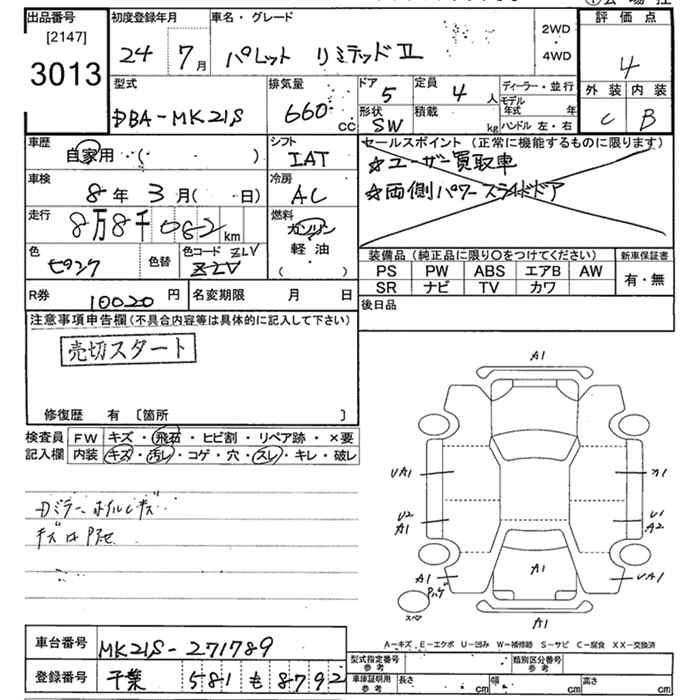 出品番号 初度登録年月 車名・グレード 2WD 評価点
[2147]
3013 24 7月 パレット リミテッドⅡ ・4WD 4
型式 排気量 ドア 5 定員 4人 ディーラー・並行 外装 内装
DBA-MK21S 660cc 形状 SW 積載 kg モデル年式 年 C B
ハンドル 左・右
車歴 シフト セールスポイント(正常に機能するものに限ります)
自家用( ) IAT ☆ユーザー買取車
車検 冷房 ☆両側パワースライドドア
8年 3月( 日) AC
走行 8万8千082km 燃料 ガソリン
軽・油
( )
色 ピンク 色替 色コード ZLV
ZLV
装備品(純正品に限り○をつけてください) 新車保証書
PS PW ABS エアB AW 有・無
SR ナビ TV カワ
R券 10020円 名変期限 月 日 後日品
注意事項申告欄(不具合内容等は具体的に記入して下さい)
売切スタート
修復歴 有 〔箇所 〕
検査員 FW キズ・飛石・ヒビ割・リペア跡・×要
記入欄 内装 キズ・汚レ・コゲ・穴・スレ・キレ・破レ
A1
UA1 A1
U2 A1 U1 A2
A1 A1 UA1
スペア A1
A-キズ E-エクボ U-凹み W-補修跡 S-サビ C-腐食 XX-交換済
車台番号 MK21S-271789 型式指定番号 参考 類別区分番号 参考
登録番号 千葉 581 も 8792 車庫証明用 参考 長さ cm 幅 cm 高さ cm